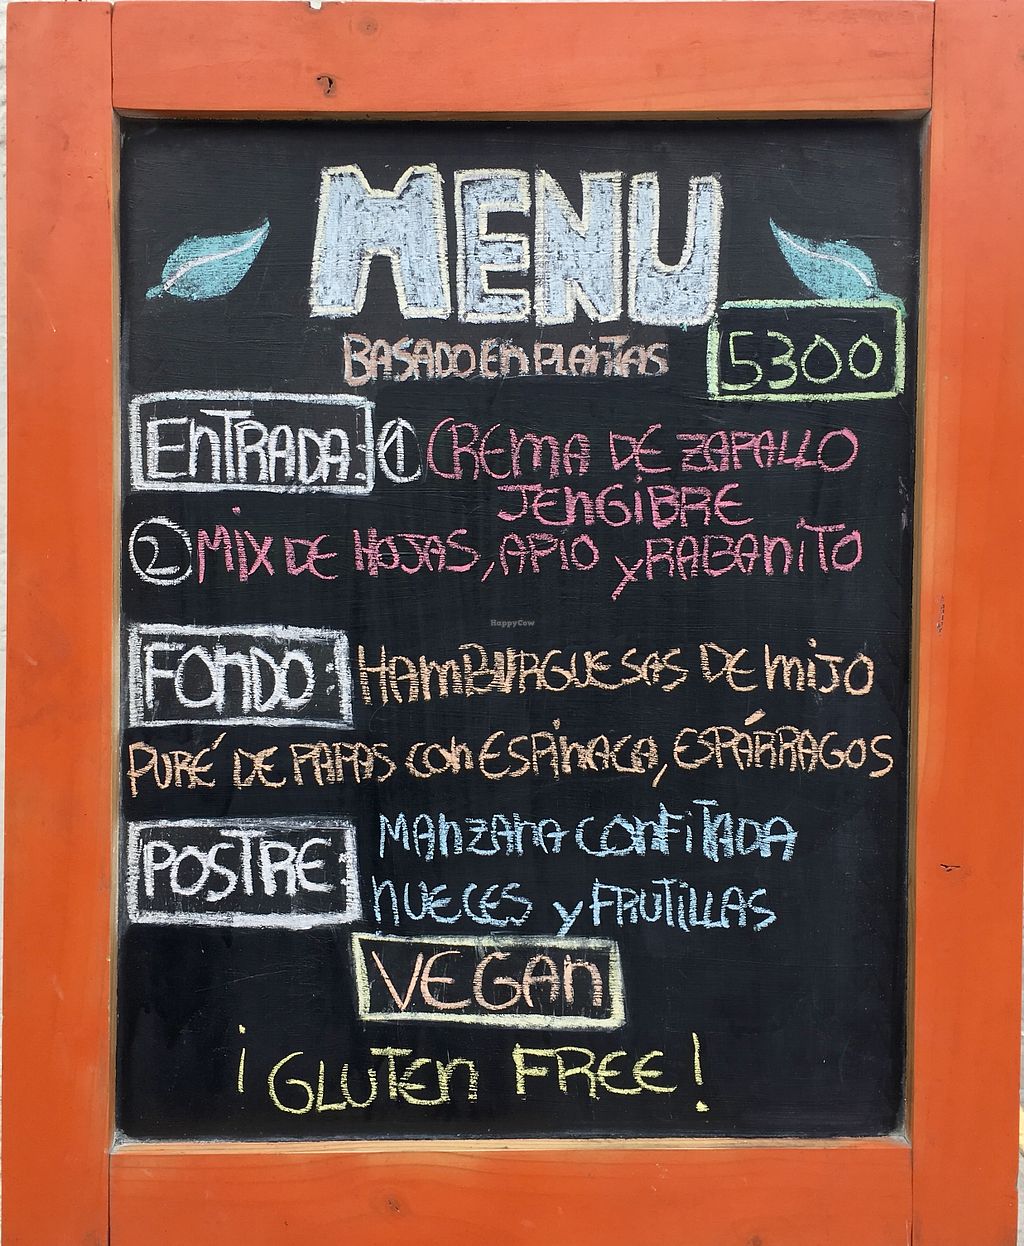 MENU
BASADO EN PLANTAS
5300
ENTRADA: 1 CREMA DE ZAPALLO
JENGIBRE
2 MIX DE HOJAS, APIO y RABANITO
HappyCow
FONDO: HAMBURGUESAS DE MIJO
PURÉ DE PAPAS CON ESPINACA, ESPÁRRAGOS
POSTRE: MANZANA CONFITADA
NUECES y FRUTILLAS
VEGAN
¡GLUTEN FREE!